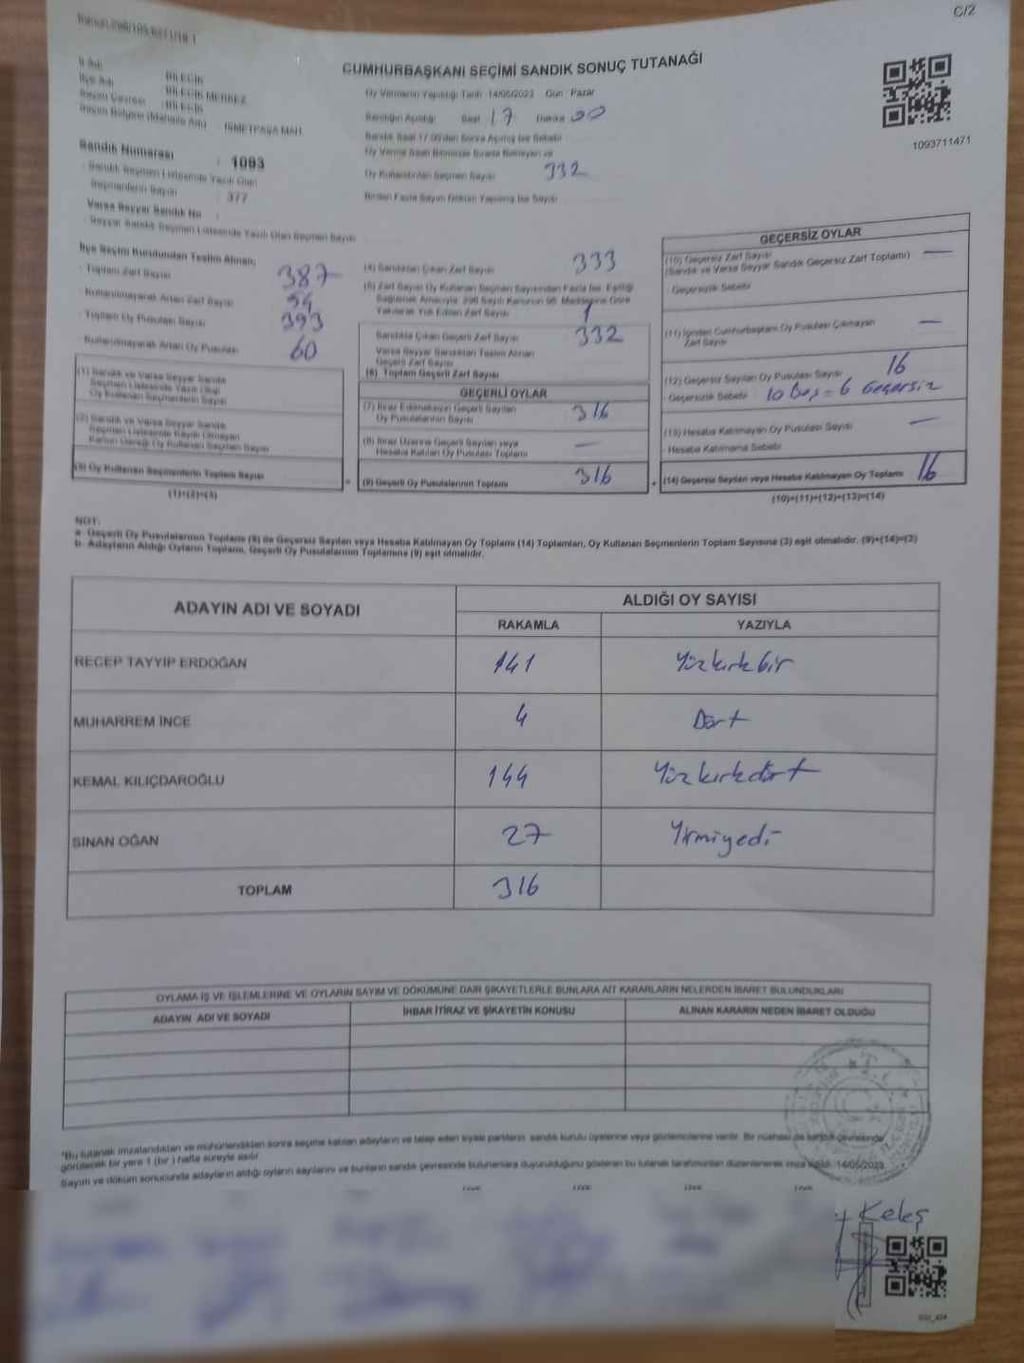 C/2
CUMHURBAŞKANI SEÇİMİ SANDIK SONUÇ TUTANAĞI
İl Adı : BİLECİK
İlçe Adı : BİLECİK MERKEZ
Seçim Çevresi : BİLECİK
Seçim Bölgesi (Mahalle Adı) : İSMETPAŞA MAH.
Sandık Numarası : 1093
Sandık Seçmen Listesinde Yazılı Olan
Seçmenlerin Sayısı : 377
Varsa Seyyar Sandık No :
Seyyar Sandık Seçmen Listesinde Yazılı Olan Seçmen Sayısı
Oy Vermenin Yapıldığı Tarih : 14/05/2023 Gün : Pazar
Sandığın Açıldığı Saat 17 Dakika 00
Sandık Saat 17.00'den Sonra Açılmış İse Sebebi
Oy Kullandırılan Seçmen Sayısı 332
Birden Fazla Sayım Döküm Yapılmış İse Sayısı
1093711471
İlçe Seçim Kurulundan Teslim Alınan;
Toplam Zarf Sayısı 387
Kullanılmayarak Artan Zarf Sayısı 54
Toplam Oy Pusulası Sayısı 393
Kullanılmayarak Artan Oy Pusulası 60
(1) Sandık ve Varsa Seyyar Sandık
Seçmen Listesinde Yazılı Olup
Oy Kullanan Seçmenlerin Sayısı
(2) Sandık ve Varsa Seyyar Sandık
Seçmen Listesinde Kayıtlı Olmayan
Kanun Gereği Oy Kullanan Seçmen Sayısı
(3) Oy Kullanan Seçmenlerin Toplam Sayısı
(1)+(2)=(3)
(4) Sandıktan Çıkan Zarf Sayısı 333
(5) Zarf Sayısı Oy Kullanan Seçmen Sayısından Fazla İse, Eşitliği
Sağlamak Amacıyla, 298 Sayılı Kanunun 98. Maddesine Göre
Yakılarak Yok Edilen Zarf Sayısı 1
Sandıkta Çıkan Geçerli Zarf Sayısı 332
Varsa Seyyar Sandıktan Teslim Alınan
Geçerli Zarf Sayısı
(6) Toplam Geçerli Zarf Sayısı
GEÇERLİ OYLAR
(7) İtiraz Edilmeksizin Geçerli Sayılan
Oy Pusulalarının Sayısı 316
(8) İtiraz Üzerine Geçerli Sayılan veya
Hesaba Katılan Oy Pusulası Toplamı —
(9) Geçerli Oy Pusulalarının Toplamı 316
GEÇERSİZ OYLAR
(10) Geçersiz Zarf Sayısı —
(Sandık ve Varsa Seyyar Sandık Geçersiz Zarf Toplamı)
Geçersizlik Sebebi
(11) İçinden Cumhurbaşkanı Oy Pusulası Çıkmayan
Zarf Sayısı —
(12) Geçersiz Sayılan Oy Pusulası Sayısı 16
Geçersizlik Sebebi 10 boş = 6 Geçersiz
(13) Hesaba Katılmayan Oy Pusulası Sayısı —
Hesaba Katılmama Sebebi
(14) Geçersiz Sayılan veya Hesaba Katılmayan Oy Toplamı 16
(10)+(11)+(12)+(13)=(14)
NOT:
a- Geçerli Oy Pusulalarının Toplamı (9) ile Geçersiz Sayılan veya Hesaba Katılmayan Oy Toplamı (14) Toplamları, Oy Kullanan Seçmenlerin Toplam Sayısına (3) eşit olmalıdır. (9)+(14)=(3)
b- Adayların Aldığı Oyların Toplamı, Geçerli Oy Pusulalarının Toplamına (9) eşit olmalıdır.
ADAYIN ADI VE SOYADI
ALDIĞI OY SAYISI
RAKAMLA YAZIYLA
RECEP TAYYİP ERDOĞAN 141 Yüzkırkbir
MUHARREM İNCE 4 Dört
KEMAL KILIÇDAROĞLU 144 Yüzkırkdört
SİNAN OĞAN 27 Yirmiyedi
TOPLAM 316
OYLAMA İŞ VE İŞLEMLERİNE VE OYLARIN SAYIM VE DÖKÜMÜNE DAİR ŞİKAYETLERLE BUNLARA AİT KARARLARIN NELERDEN İBARET BULUNDUKLARI
ADAYIN ADI VE SOYADI İHBAR İTİRAZ VE ŞİKAYETİN KONUSU ALINAN KARARIN NEDEN İBARET OLDUĞU
T.C.
*Bu tutanak imzalandıktan ve mühürlendikten sonra seçime katılan adayların ve talep eden siyasi partilerin sandık kurulu üyelerine veya gözlemcilerine verilir. Bir nüshası da sandık çevresinde
görülecek bir yere 1 (bir) hafta süreyle asılır.
Sayım ve döküm sonucunda adayların aldığı oyların sayılarını ve bunların sandık çevresinde bulunanlara duyurulduğunu gösteren bu tutanak tarafımızdan düzenlenerek imza edildi. 14/05/2023
Keleş